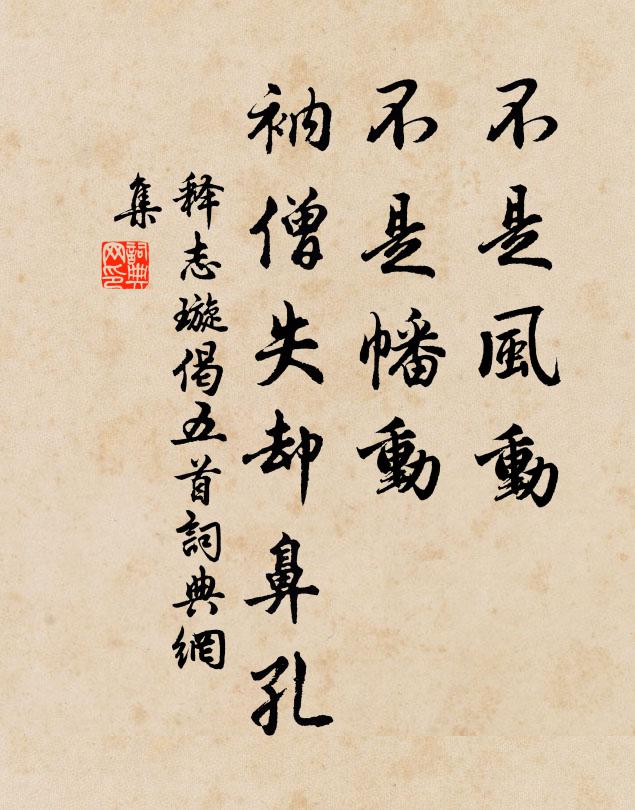 不是風動
不是幡動
衲僧失却鼻孔
释志璇偈五首詞典網
集
詞典網印